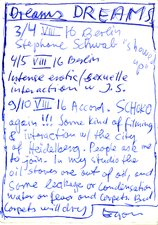 Dreams DREAMS
3/4 VIII 16 Berlin
Stephane Schwab "shows up"
4/5 VIII 16 Berlin
Intense erotic/sexuelle
interaction w J.S.
9/10 VIII 16 Accord. SCHOKO
again!!! Some kind of filming
& interaction w the city
of Heidelberg. People ask me
to join. In my studio the
oil stoves are out of oil, and
some leakage or condensation
water on floor and carpets. Bad
carpets will dry
Egon